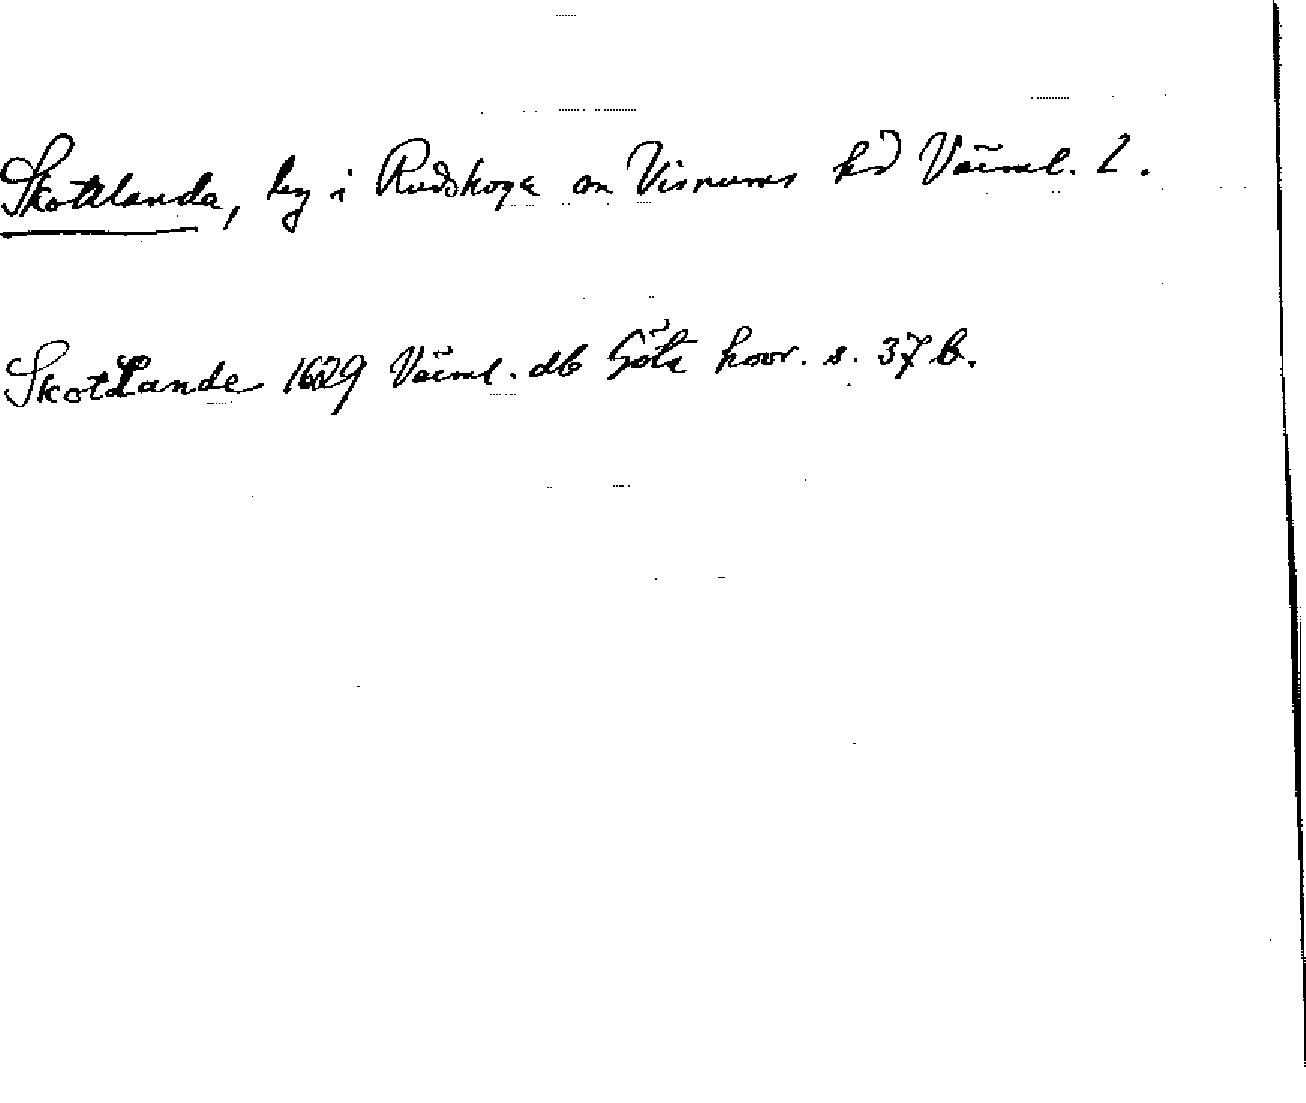 Skottlanda, by i Rudskoga sn Visnums hd Värml. L.
SkotLande 1629 Värml. db Göta hovr. s. 37 b.